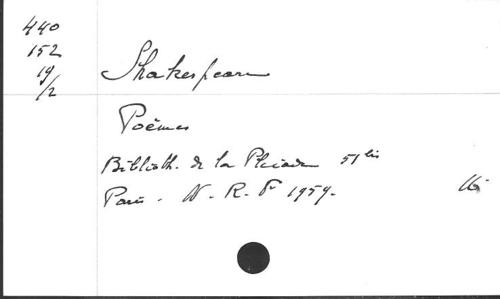 440
152
19/2
Shakespeare
Poèmes
Biblioth. de la Pleiade 51 bis
Paris. N. R. F 1959.